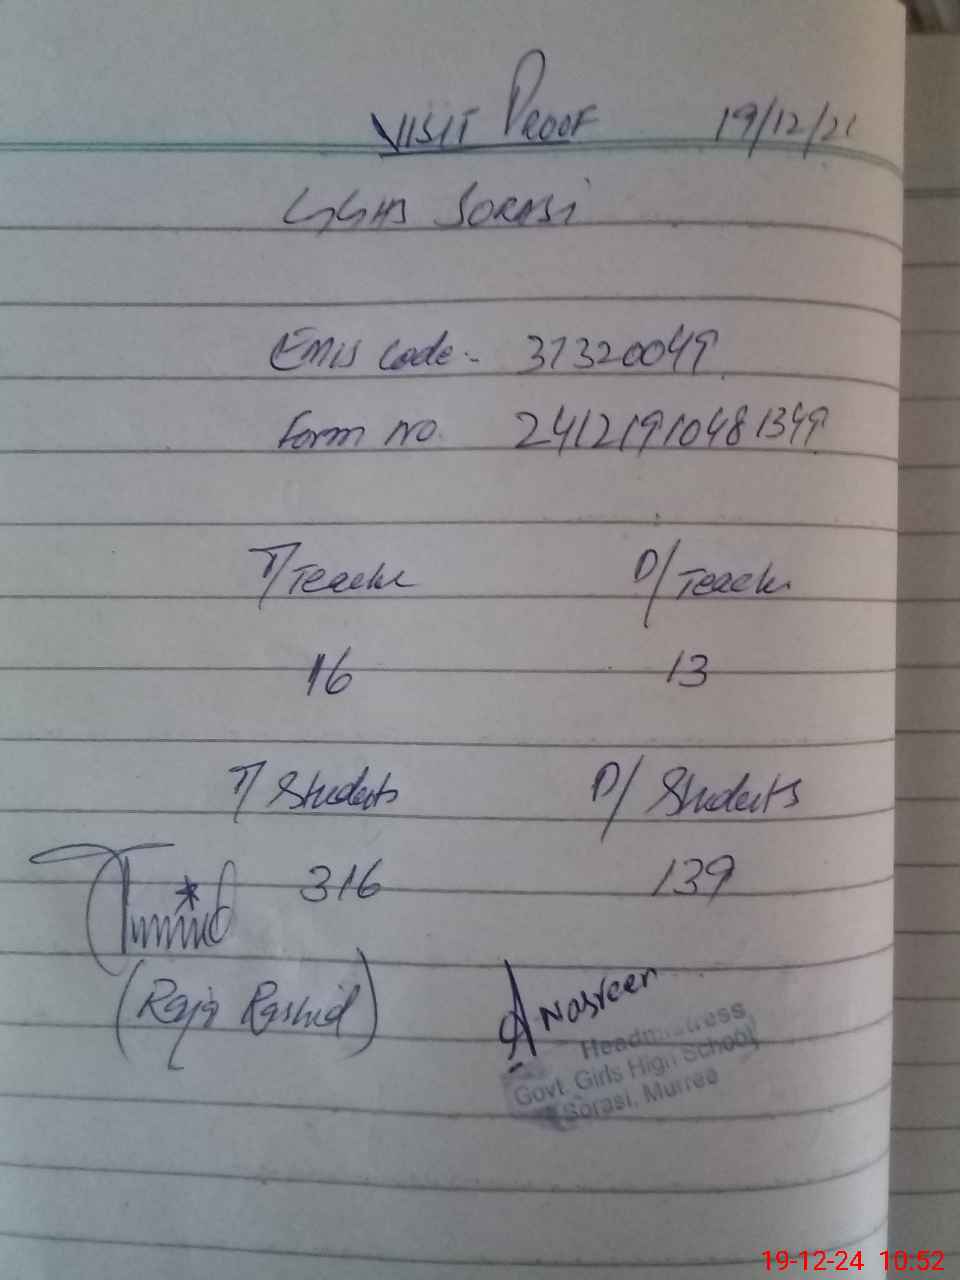 VISIT PROOF 19/12/21
GGHS SORASI
Emis Code:- 37320049
Form no. 24121910481349
T/Teacher P/Teacher
16 13
T/Students P/Students
316 139
(Raja Rashid)
A Nasreen
Headmistress
Govt. Girls High School
Sorasi, Murree
19-12-24 10:52